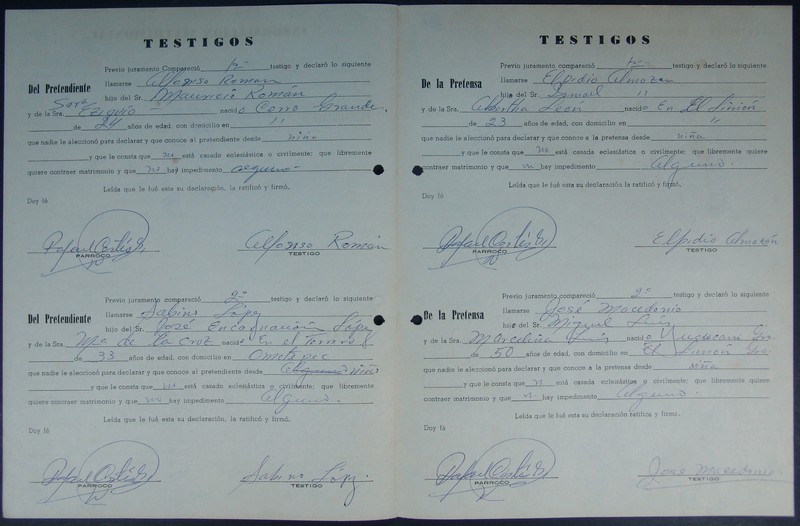 TESTIGOS
Previo juramento Compareció 1o testigo y declaró lo siguiente
Del Pretendiente
llamarse Alfonso Román
hijo del Sr. Mauricio Román
y de la Sra. nació Cerro Grande
de 24 años de edad, con domicilio en "
que nadie le aleccionó para declarar y que conoce al pretendiente desde niño
y que le consta que no está casado eclesiástica o civilmente; que libremente
quiere contraer matrimonio y que no hay impedimento alguno.
Leída que le fué esta su declaración, la ratificó y firmó.
Doy fé
Rafael Cortés
PARROCO
Alfonso Román
TESTIGO
Previo juramento compareció 2o testigo y declaró lo siguiente
Del Pretendiente
llamarse Sabino López
hijo del Sr. José Encarnación López
y de la Sra. Ma de la Cruz nació En el
de 33 años de edad, con domicilio en Ometepec
que nadie le aleccionó para declarar y que conoce al pretendiente desde niño
y que le consta que no está casado eclesiástica o civilmente; que libremente
quiere contraer matrimonio y que no hay impedimento Alguno.
Leída que le fué esta su declaración, la ratificó y firmó.
Doy fé
Rafael Cortés
PARROCO
Sabino López.
TESTIGO
TESTIGOS
Previo juramento compareció 1o testigo y declaró lo siguiente
De la Pretensa
llamarse Elpidio Almazán
hijo del Sr. Ismael "
y de la Sra. León nació En El
de 23 años de edad, con domicilio en "
que nadie le aleccionó para declarar y que conoce a la pretensa desde niña
y que le consta que no está casado eclesiástica o civilmente; que libremente
quiere contraer matrimonio y que no hay impedimento Alguno.
Leída que le fué esta su declaración la ratificó y firmó.
Doy fé
Rafael Cortés
PARROCO
Elpidio Almazán
TESTIGO
Previo juramento compareció 2o testigo y declaró lo siguiente
De la Pretensa
llamarse José Macedonio
hijo del Sr. Miguel Luis
y de la Sra. Marcelina Luis nació
de 50 años de edad, con domicilio en El
que nadie le aleccionó para declarar y que conoce a la pretensa desde niña
y que le consta que n está casado eclesiástica o civilmente; que libremente
contraer matrimonio y que n hay impedimento Alguno.
Leída que le fué esta su declaración ratificó y firmó.
Doy fé
Rafael Cortés
PARROCO
José Macedonio
TESTIGO